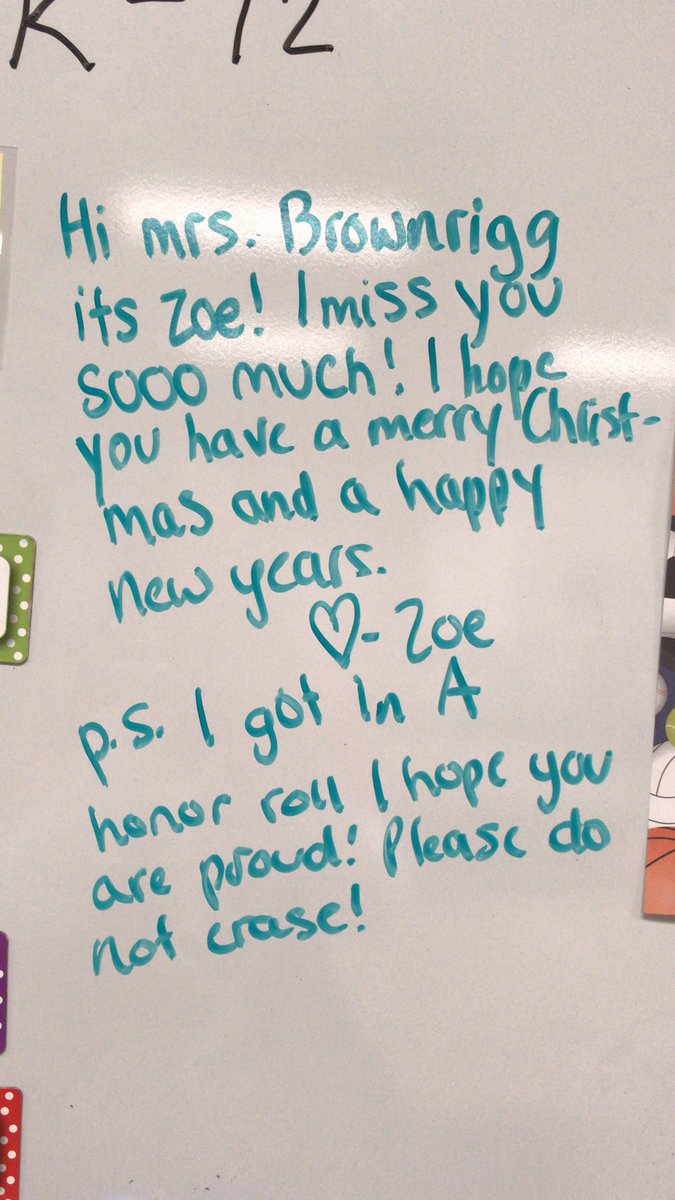 K-12
Hi mrs. Brownrigg
its Zoe! I miss you
sooo much! I hope
you have a merry Christ-
mas and a happy
new years.
♡- Zoe
p.s. I got in A
honor roll I hope you
are proud! Please do
not erase!